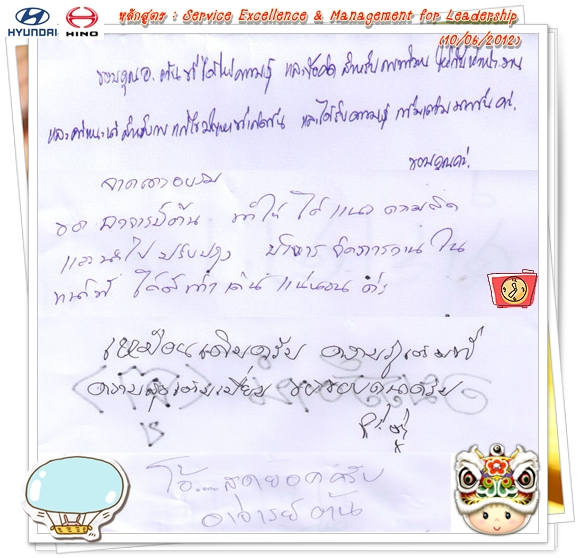 HYUNDAI HINO หลักสูตร : Service Excellence & Management for Leadership
(10/06/2012)
ขอบคุณ อ. ต้น ที่ได้ให้ความรู้ และข้อคิด สำหรับการทำงาน ให้กับหัวหน้างาน
และคำแนะนำสำหรับการแก้ไขปัญหาที่เกิดขึ้น และได้รับความรู้ เพิ่มเติม มากขึ้น ค่ะ
ขอบคุณค่ะ.
จากการอบรม
ของ อาจารย์ต้น ทำให้ ได้ แนวความคิด
และนำไป ปรับปรุง บริหาร จัดการงาน ใน
หน้าที่ ได้ดีกว่าเดิม แน่นอน ค่ะ
เหมือนเดิมครับ ความรู้
ความ เต็มเปี่ยม ขอขอบคุณครับ
โอ้....สุดยอดครับ
อาจารย์ ต้น